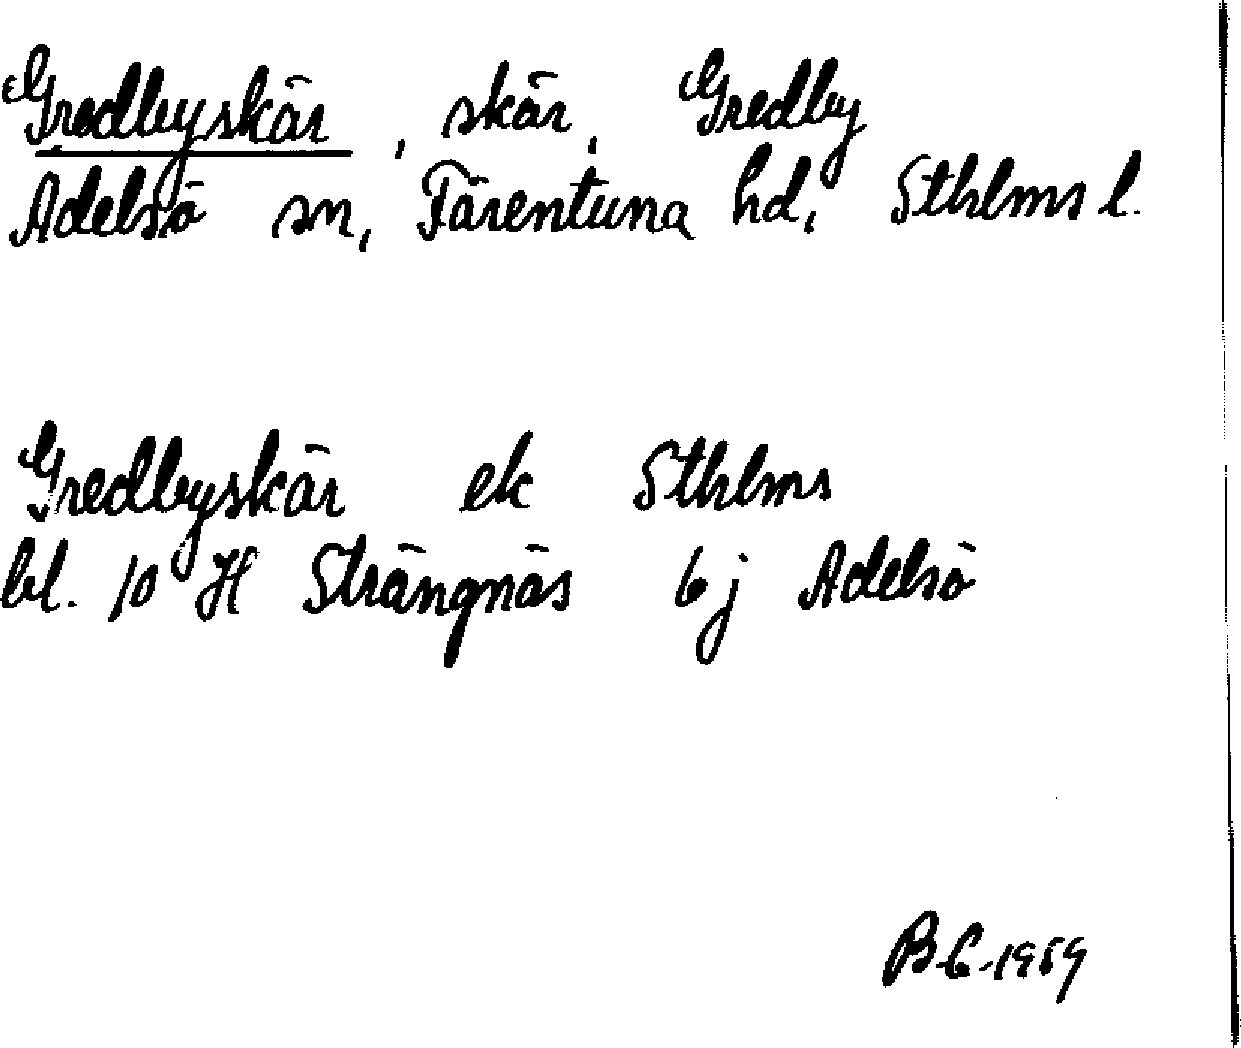 Gredbyskär, skär, Gredby
Adelsö sn, Färentuna hd, Sthlms l.
Gredbyskär ek Sthlms
bl. 10 H Strängnäs 6 j Adelsö
B.C. 1959